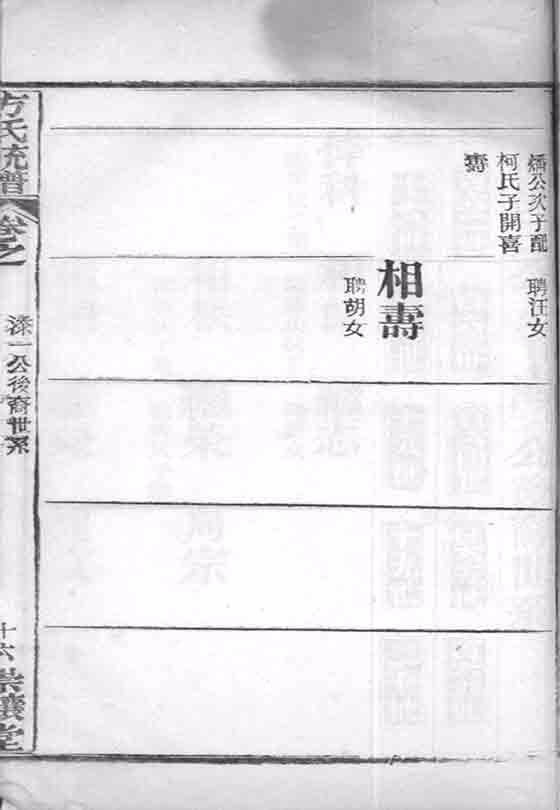 公次子配
柯氏子開喜
壽
聘汪女
相壽
聘胡女
方氏統譜
卷之
漆一公後裔世系
十六
崇讓堂